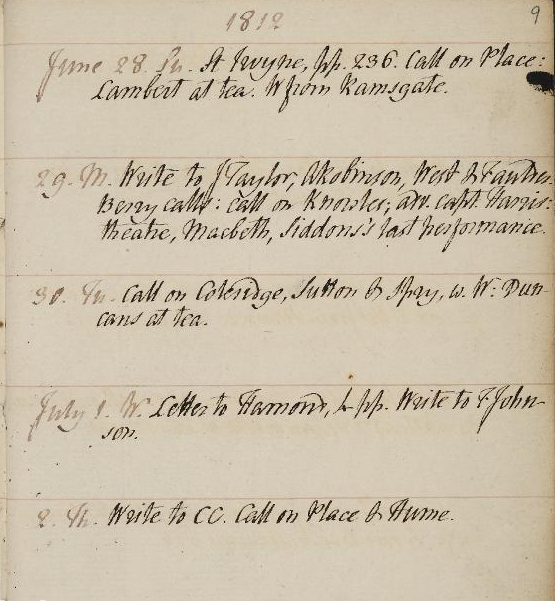 1812
9
June 28. Su. St Irvyne, pp. 236. Call on Place:
Lambert at tea. W from Ramsgate.
29. M. Write to J Taylor, A Robinson, West &
Berry calls: call on Knowles; adv. Capt. Harris:
theatre, Macbeth, Siddons's last performance.
30. Tu. Call on Coleridge, Sutton & Spry, w. W: Dun-
cans at tea.
July 1. W. Letter to Hamond, 4 pp. Write to F. John-
son.
2. Th. Write to CC. Call on Place & Hume.